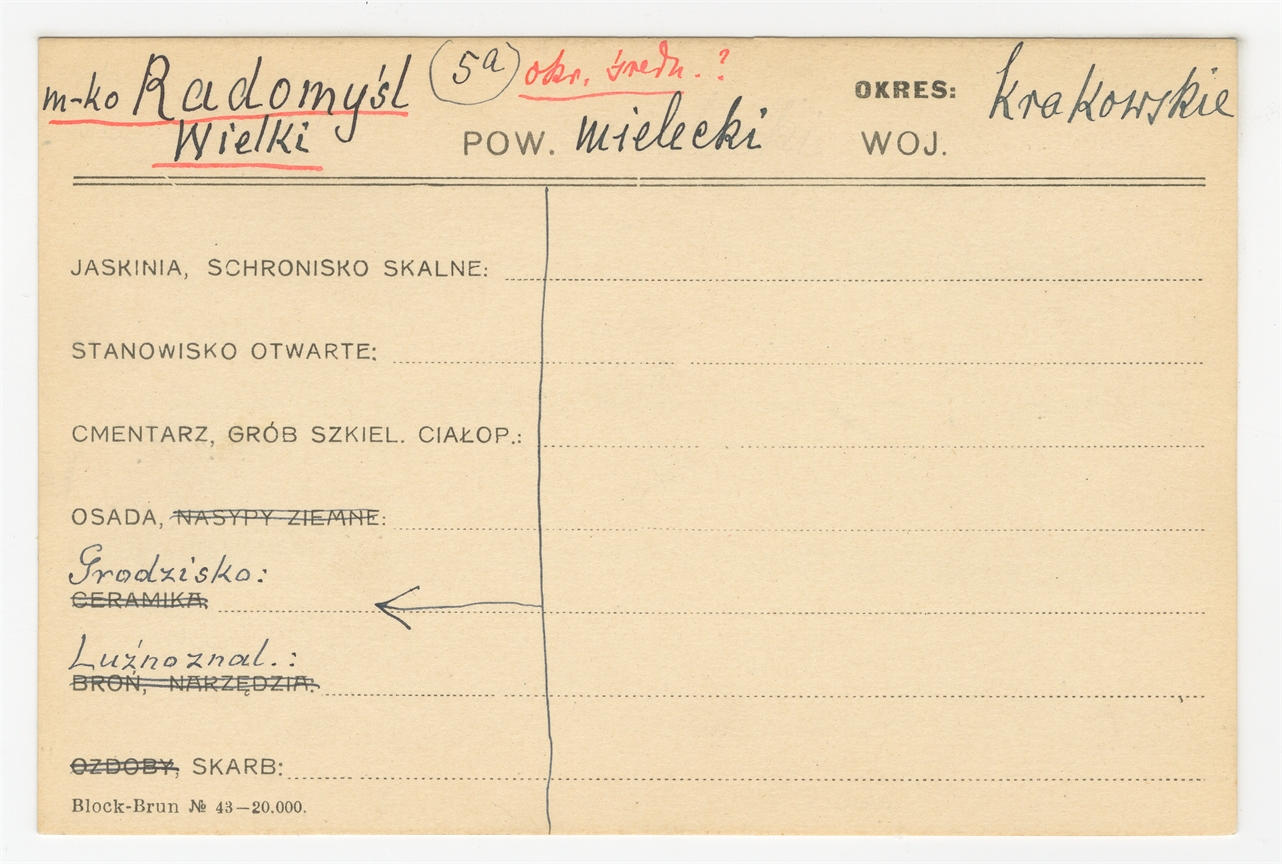 m-ko Radomyśl (5a) okr. średn. ? OKRES: Krakowskie
Wielki POW. mielecki WOJ.
JASKINIA, SCHRONISKO SKALNE:
STANOWISKO OTWARTE:
CMENTARZ, GRÓB SZKIEL. CIAŁOP.:
OSADA, NASYPY ZIEMNE:
Grodzisko:
CERAMIKA:
Luźno znal.:
BROŃ, NARZĘDZIA:
OZDOBY, SKARB:
Block-Brun № 43—20.000.